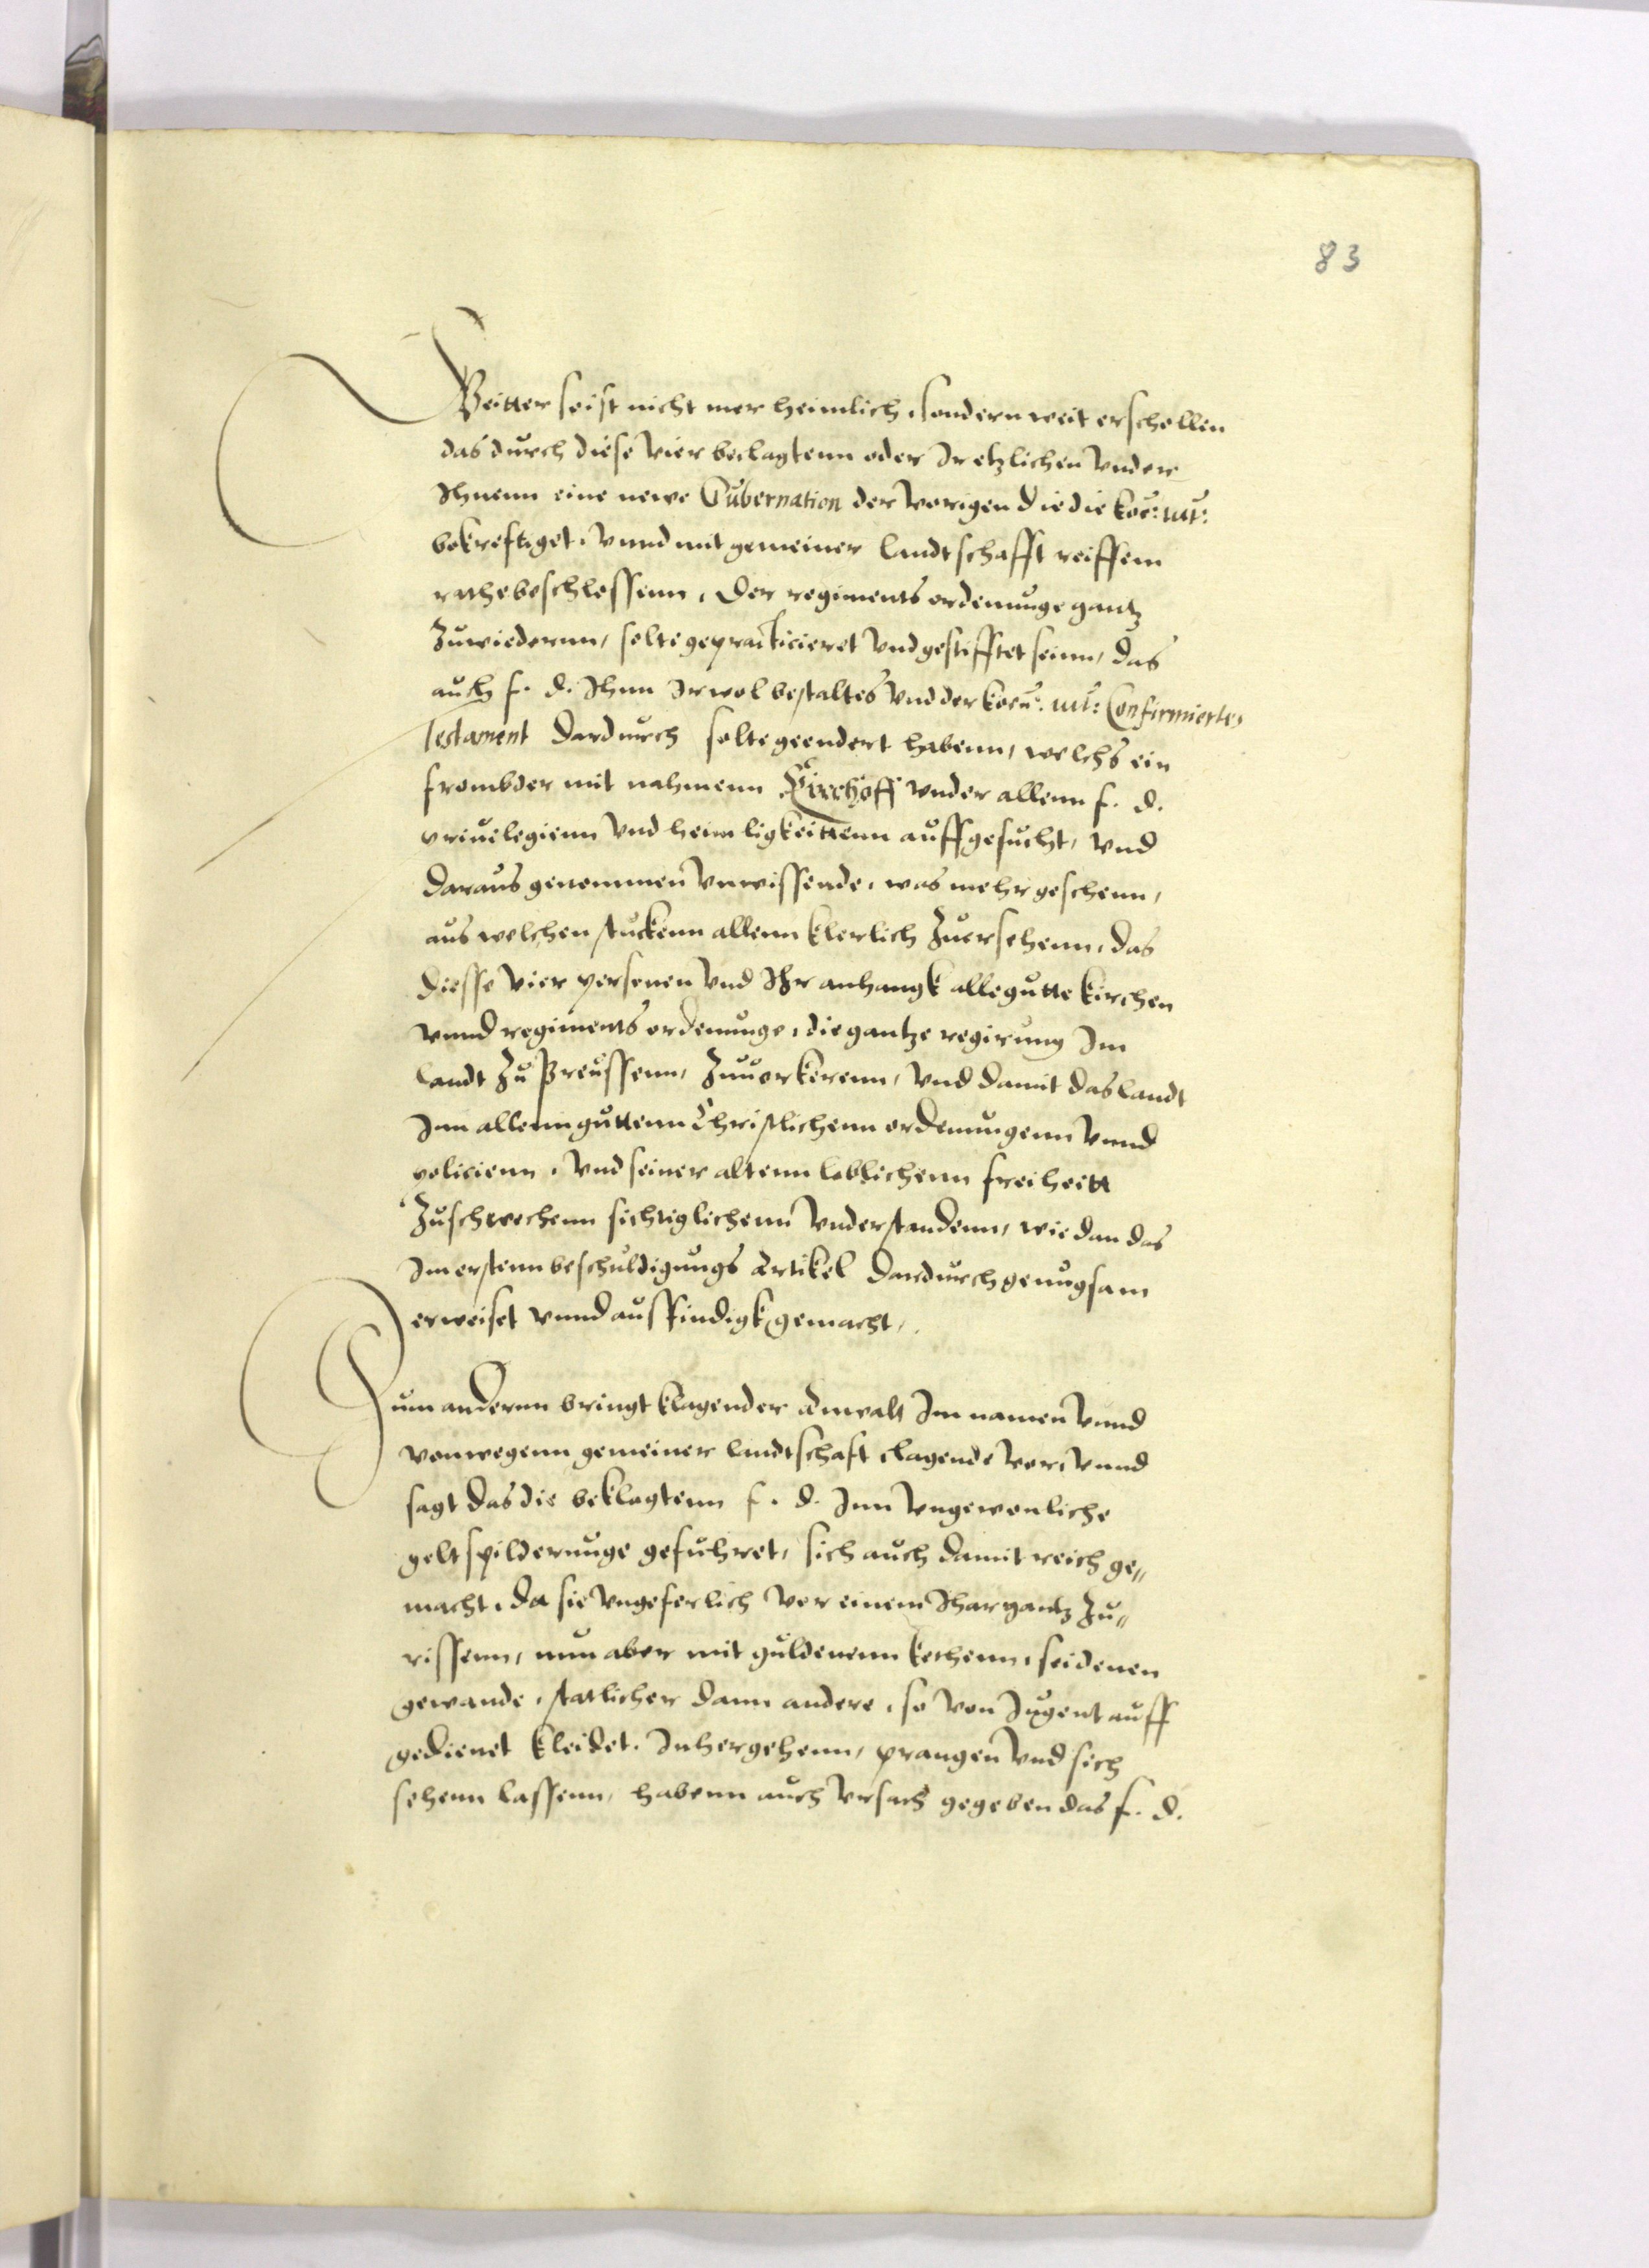 83
Weitter so ist nicht mer heimlich, sondern weit erschollen
das durch diese vier beclagtenn oder Ir etzlichen vnder
Ihnenn eine newe Gubernation der vorigen die die koe: mt:
bekrefftiget, vnnd mit gemeiner landtschafft reiffem
rathe beschlossenn, der regiments ordenunge gantz
Zuwiedernn, solte gepracticieret vnd gestifftet seinn, das
auch f. d. Ihnn Ir wol bestaltes vnd der koen: mt: Confirmiertes
Testament dardurch solte geendert habenn, welchs ein
frombder mit nahmenn Kirchoff vnder allenn f. d.
priuelegienn vnd heimligkeittenn auffgesucht, vnd
daraus genommen vnwissende, was mehr geschenn,
aus welchen stuckenn allenn klerlich Zuersehenn, das
diesse vier personen vnd Ihr anhangk alle gutte kirchen
vnnd regiments ordenunge, die gantze regirung Im
landt Zu Preussenn, Zuuorkerenn, vnd damit das landt
Inn allenn guttenn Christlichenn ordenungenn vnnd
policienn, vnd seiner altenn loblichenn freiheitt
Zuschwechenn sichtiglichenn vnderstandenn, wie dan das
Im erstenn beschuldigungs Artikel dardurch genugsam
erweiset vnnd ausfindigk gemacht,
Zum andernn bringt klagender Anwalt Im namen vnnd
vonwegenn gemeiner landtschaft clagende vor, vnnd
sagt das die beklagtenn f. d. Inn vngewonliche
gelt spilderunge gefuhret, sich auch damit reich ge„
macht, da sie vngeferlich vor einem Ihar gantz Zu„
rissenn, nun aber mit guldenenn kethenn, seidenen
gewande, statlicher dann andere, so von Jugent auff
gedienet kleidet. Inhergehenn, prangen vnd sich
sehenn lassenn, habenn auch vrsach gegeben das f. d.